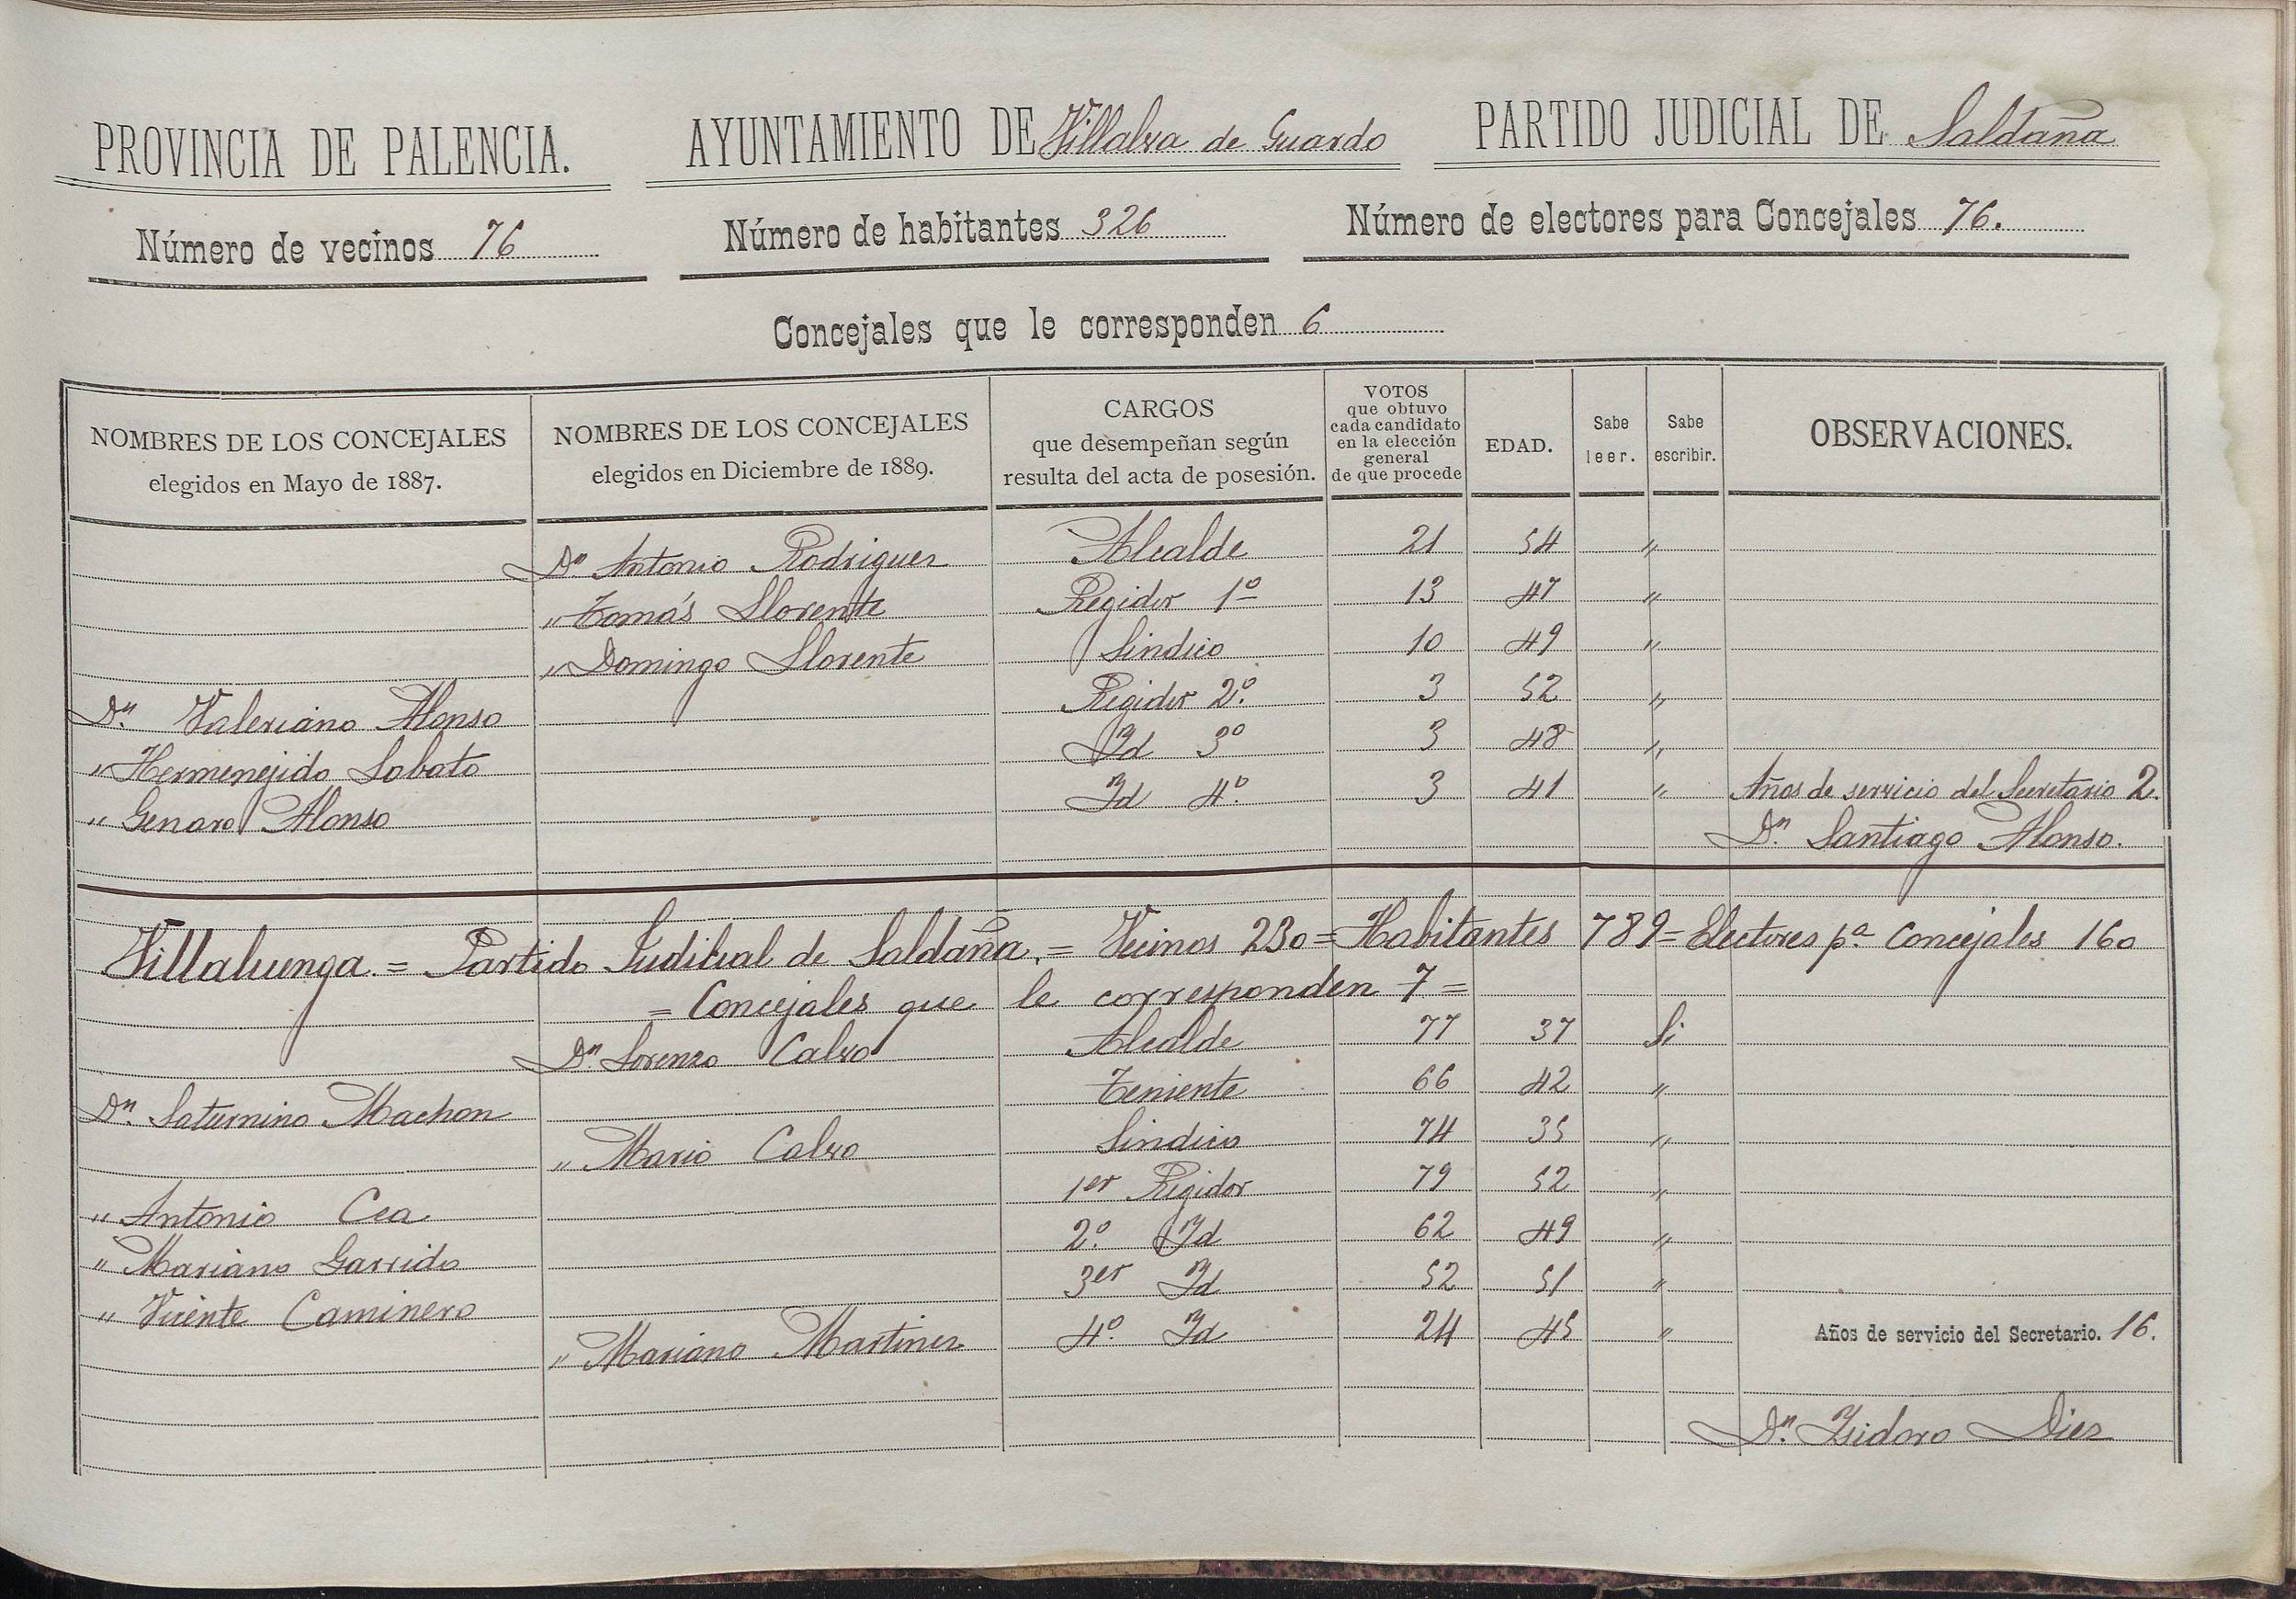 PROVINCIA DE PALENCIA. AYUNTAMIENTO DE Villalva de Guardo PARTIDO JUDICIAL DE Saldaña
Número de vecinos 76 Número de habitantes 326 Número de electores para Concejales 76.
Concejales que le corresponden 6
NOMBRES DE LOS CONCEJALES elegidos en Mayo de 1887. NOMBRES DE LOS CONCEJALES elegidos en Diciembre de 1889. CARGOS que desempeñan según resulta del acta de posesión. VOTOS que obtuvo cada candidato en la elección general de que procede EDAD. Sabe leer. Sabe escribir. OBSERVACIONES.
Dn Antonio Rodriguez Alcalde 21 54 "
" Tomás Llorente Regidor 1º 13 47 "
" Domingo Llorente Sindico 10 49 "
Dn. Valeriano Alonso Regidor 2º. 3 52 "
" Hermenejido Lobato Id 3º 3 48 "
" Genaro Alonso Id 4º. 3 41 " Años de servicio del Secretario 2.
Dn. Santiago Alonso.
Villaluenga = Partido Judicial de Saldaña. = Vecinos 230 = Habitantes 789 = Electores pª Concejales 160
= Concejales que le corresponden 7 =
Dn. Lorenzo Calvo Alcalde 77 37 Si
Dn. Saturnino Machon Teniente 66 42 "
" Mario Calvo Sindico 74 35 "
" Antonio Cea 1er Regidor 79 52 "
" Mariano Garrido 2º. Id 62 49 "
" Vicente Caminero 3er Id 52 51 "
" Mariano Martinez 4º. Id 24 45 " Años de servicio del Secretario. 16.
Dn. Isidoro Diez